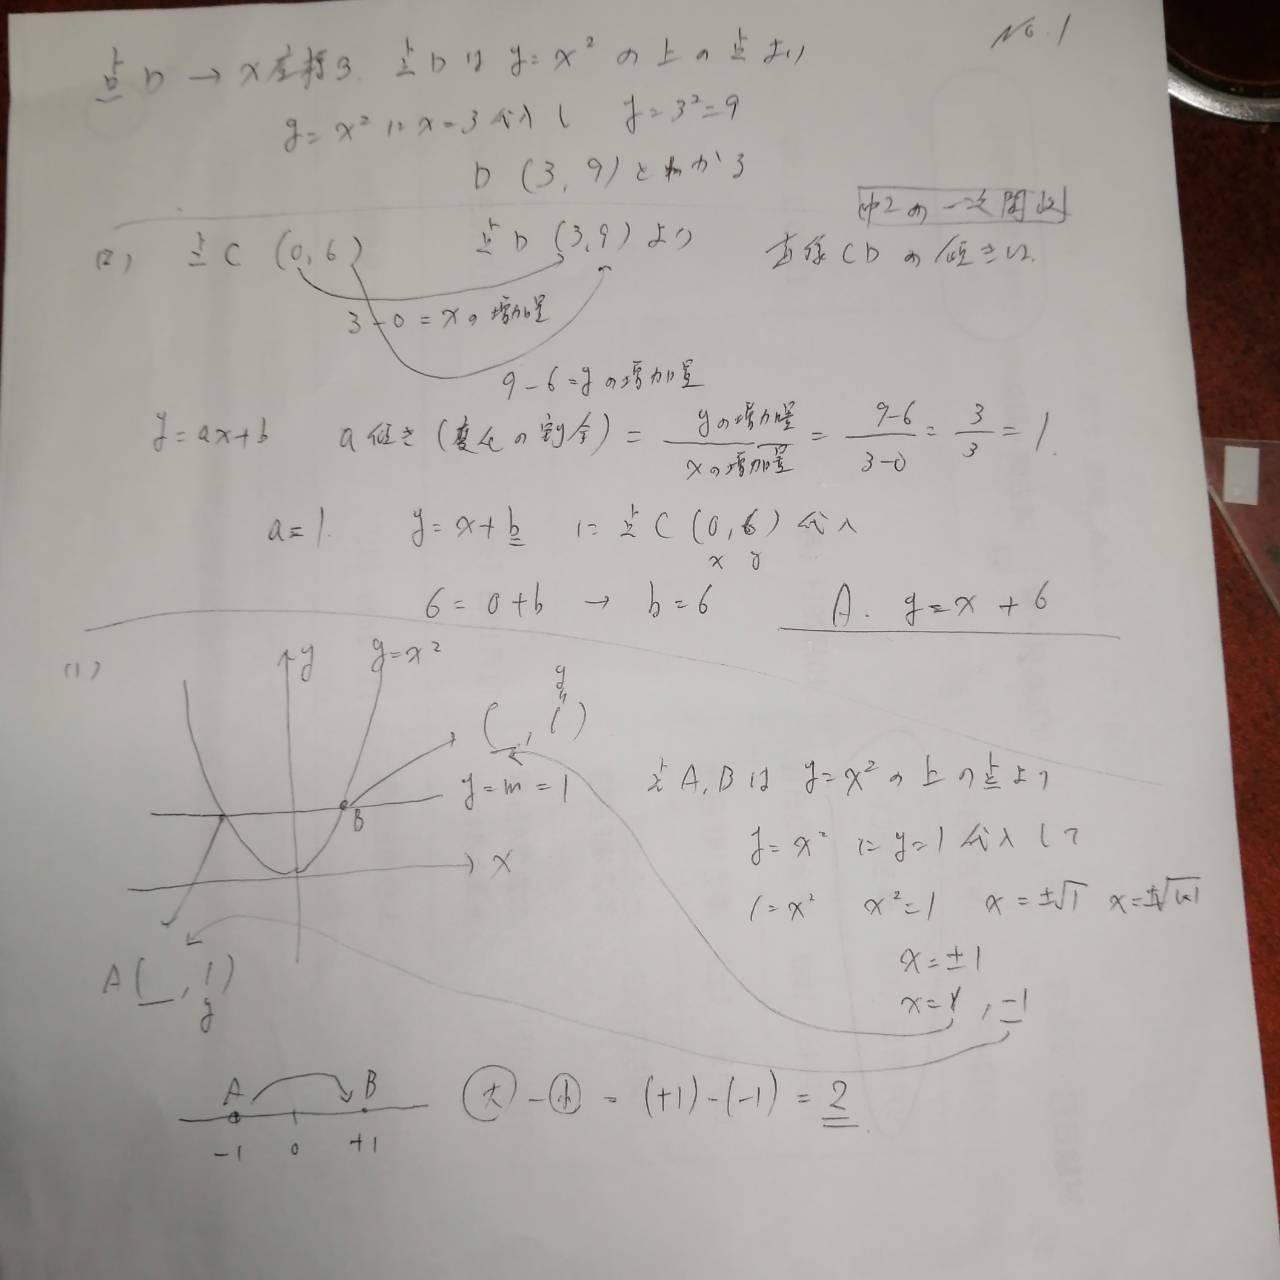 No.1
点D → x座標3. 点Dは y=x² の上の点より
y=x² に x=3 代入し y=3²=9
D (3, 9) とわかる
中2の一次関数
(2) 点C (0, 6) 点D (3, 9) より 直線CDの傾きは
3-0=xの増加量
9-6=yの増加量
y=ax+b a 傾き (変化の割合) = yの増加量/xの増加量 = 9-6/3-0 = 3/3 = 1.
a=1. y=x+b に 点C (0, 6) 代入
x y
6=0+b → b=6 A. y=x+6
(1)
y y=x²
y
( , 1)
y=m=1
B
x
点A, Bは y=x² の上の点より
y=x² に y=1 代入して
1=x² x²=1 x=±√1 x=±√1×1
x=±1
x=1, -1
A( , 1)
y
A B
-1 0 +1
大-小=(+1)-(-1)=2